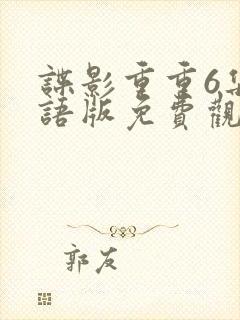 諜影重重6集
語版免費觀
郭友